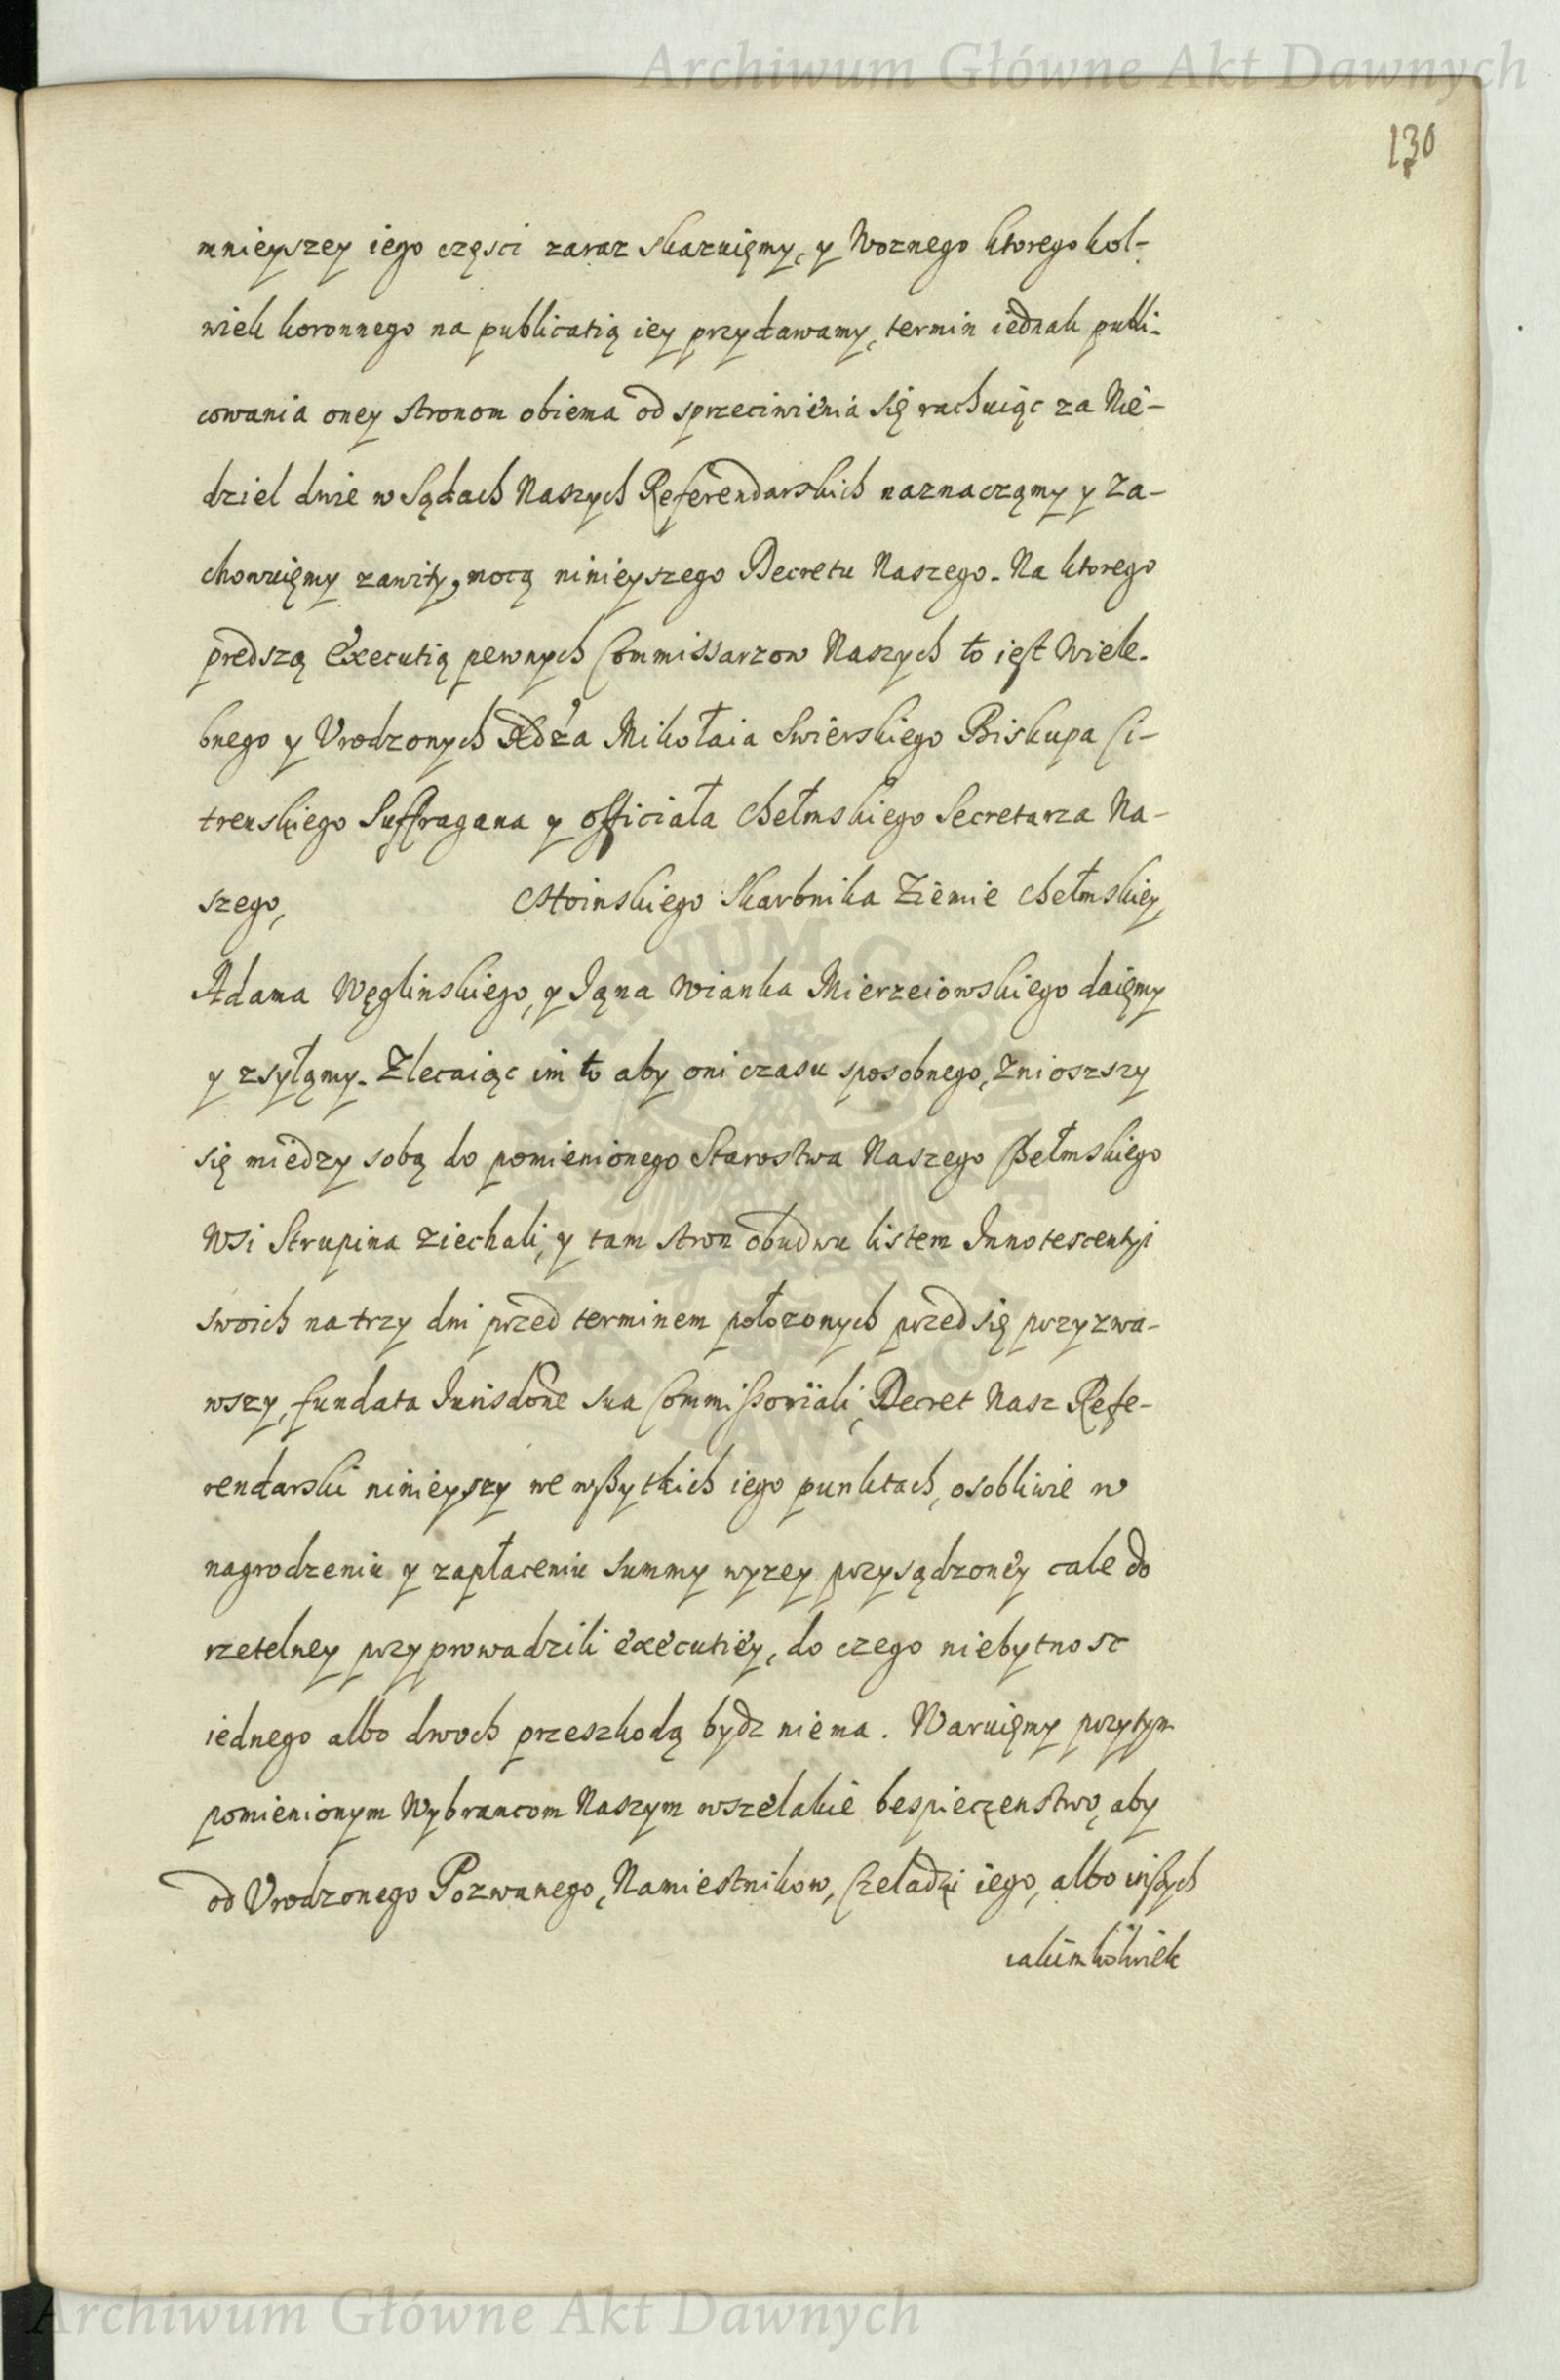 Archiwum Główne Akt Dawnych
130
mnieyszey iego częsci zaraz skazuięmy, y Woznego ktorego kol-
wiek koronnego na publicatią iey przydawamy, termin iednak publi-
cowania oney stronom obiema od sprzeciwienia się rachuiąc za Nie-
dziel dwie w Sądach Naszych Referendarskich naznaczamy y za-
chowuięmy zawity, mocą ninieyszego Decretu Naszego. Na ktorego
prędszą Executią pewnych Commissarzow Naszych to iest Wiele-
bnego y Urodzonych Xdza Mikołaia Swierskiego Biskupa Ci-
trenskiego Suffragana y officiała Chełmskiego Secretarza Na-
szego, Stoinskiego Skarbnika Ziemie Chełmskiey,
Adama Węglinskiego, y Jąna Wianka Mierzeiowskiego daięmy
y zsyłąmy. Zlecaiąc im to aby oni czasu sposobnego, Znioszszy
się między sobą do pomienionego Starostwa Naszego Chełmskiego
Wsi Strupina ziechali, y tam stron obudwu listem Innotescentyi
swoich na trzy dni przed terminem połozonych przed się przyzwa-
wszy, fundata Jurisdone sua Commissoriali, Decret Nasz Refe-
rendarski ninieyszy we wszytkich iego punktach, osobliwie w
nagrodzeniu y zapłaceniu summy wyzey przysądzoney cale do
rzetelney przyprowadzili executiey, do czego niebytnosc
iednego albo dwoch przeszkodą bydz niema. Waruięmy przytym
pomienionym Wybrancom Naszym wszelakie bespieczenstwo, aby
od Urodzonego Pozwanego, Namiestnikow, Czeladzi iego, albo inszych
iakimkolwiek
Archiwum Główne Akt Dawnych